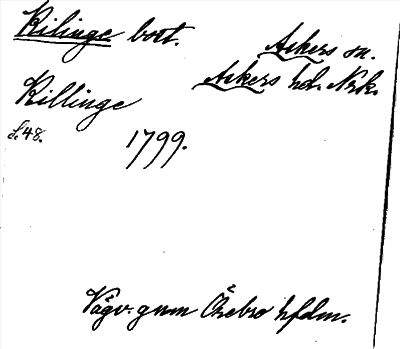 Kilinge bort.
Askers sn.
Askers hd. Nrk.
Killinge
s. 48.
1799.
Vägv. gnm Örebro hfdm.